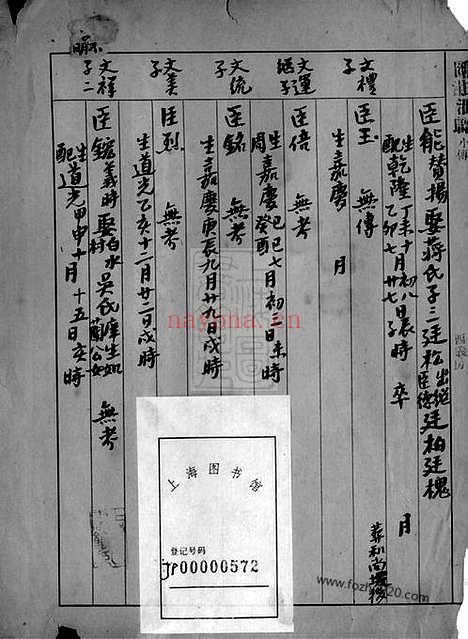 臣能贊揚娶蔣氏子三廷松出继臣倍廷柏廷槐
生乾隆丁未十月初八日辰時 卒 月
配 乙卯七月廿七
葬和尚
文禮
子
臣玉 無傳
生嘉慶 月
文運
继子
臣倍 無考
生嘉慶己巳七月初三日未時
周 癸酉
文流
子
臣銘 無考
生嘉慶庚辰九月廿九日戌時
文美
子
臣烈 無考
生道光乙亥十二月廿二日戌時
文祥
子二
臣鏇義時娶白水村吳氏庠生如蘭公女 無考
生道光甲申十月十五日亥時
配
上海图书馆
登记号码
JP00000572
nayona.cn
www.fozhu920.com